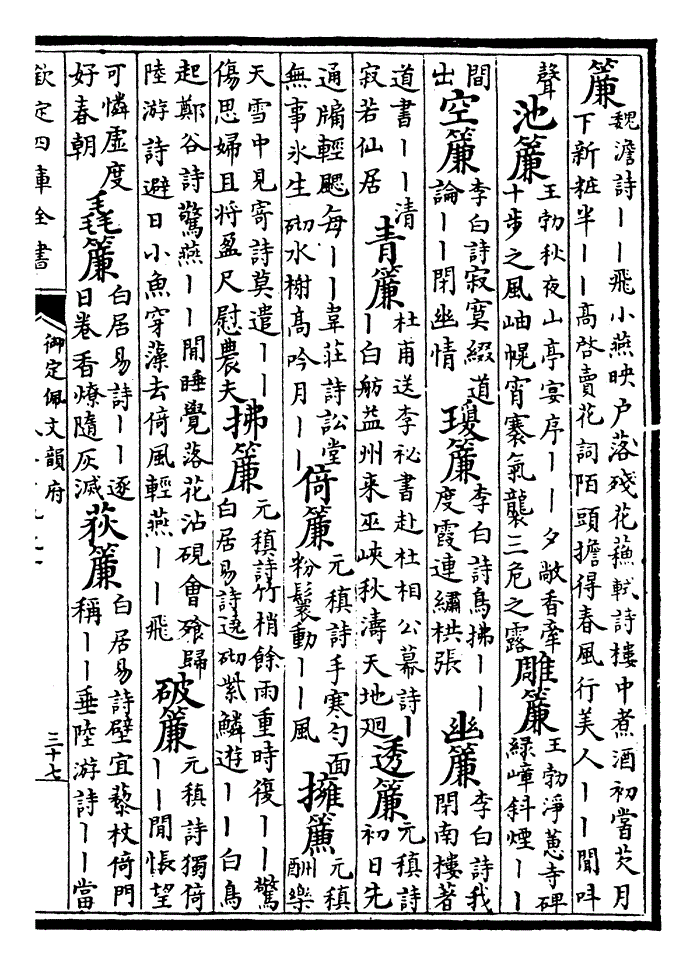 簾
魏澹詩丨丨飛小燕映户落殘花蘇軾詩樓中煮酒初嘗芡月
下新粧半丨丨髙啓賣花詞陌頭擔得春風行美人丨丨聞呌
聲
池簾
王勃秋夜山亭宴序丨丨夕敞香牽
十步之風岫幌宵褰氣襲三危之露
雕簾
王勃淨蕙寺碑
緑嶂斜煙丨丨
間
出
空簾
李白詩寂寞綴道
論丨丨閉幽情
瓊簾
李白詩鳥拂丨丨
度霞連繡栱張
幽簾
李白詩我
閉南樓著
道書丨丨清
寂若仙居
青簾
杜甫送李祕書赴杜相公幕詩丨
丨白舫益州來巫峽秋濤天地廻
透簾
元稹詩
初日先
通牖輕颸每丨丨韋莊詩訟堂
無事氷生砌水榭髙吟月丨丨
倚簾
元稹詩手寒勻面
粉鬟動丨丨風
擁簾
元稹
酬樂
天雪中見寄詩莫遣丨丨
傷思婦且將盈尺慰農夫
拂簾
元稹詩竹梢餘雨重時復丨丨驚
白居易詩遶砌紫鱗遊丨丨白鳥
起鄭谷詩驚燕丨丨閒睡覺落花沾硯會飱歸
陸游詩避日小魚穿藻去倚風輕燕丨丨飛
破簾
元稹詩獨倚
丨丨閒悵望
可憐虛度
好春朝
毳簾
白居易詩丨丨逐
日卷香燎隨灰滅
荻簾
白居易詩壁宜藜杖倚門
稱丨丨垂陸游詩丨丨當
欽定四庫全書
御定佩文韻府
三十七